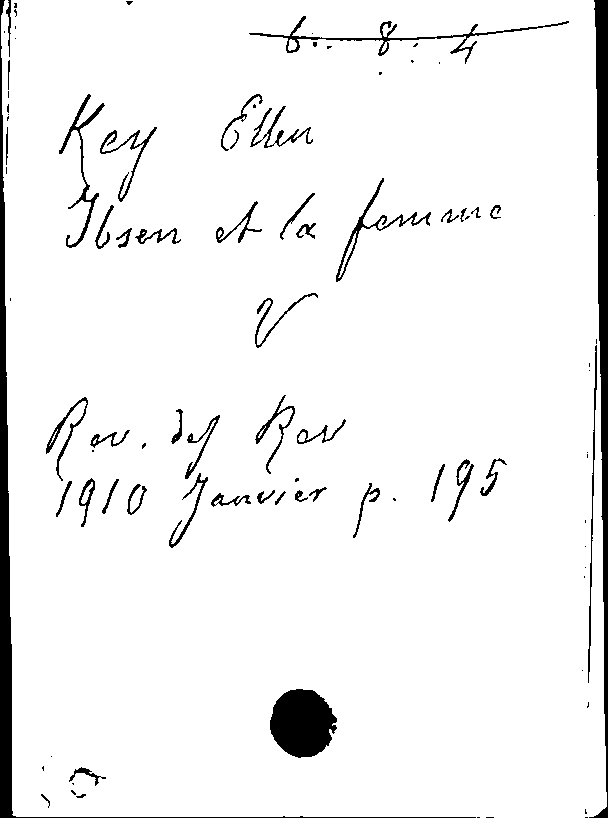 6. 8. 4
Key Ellen
Ibsen et la femme
V
Rev. des Rev
1910 Janvier p. 195